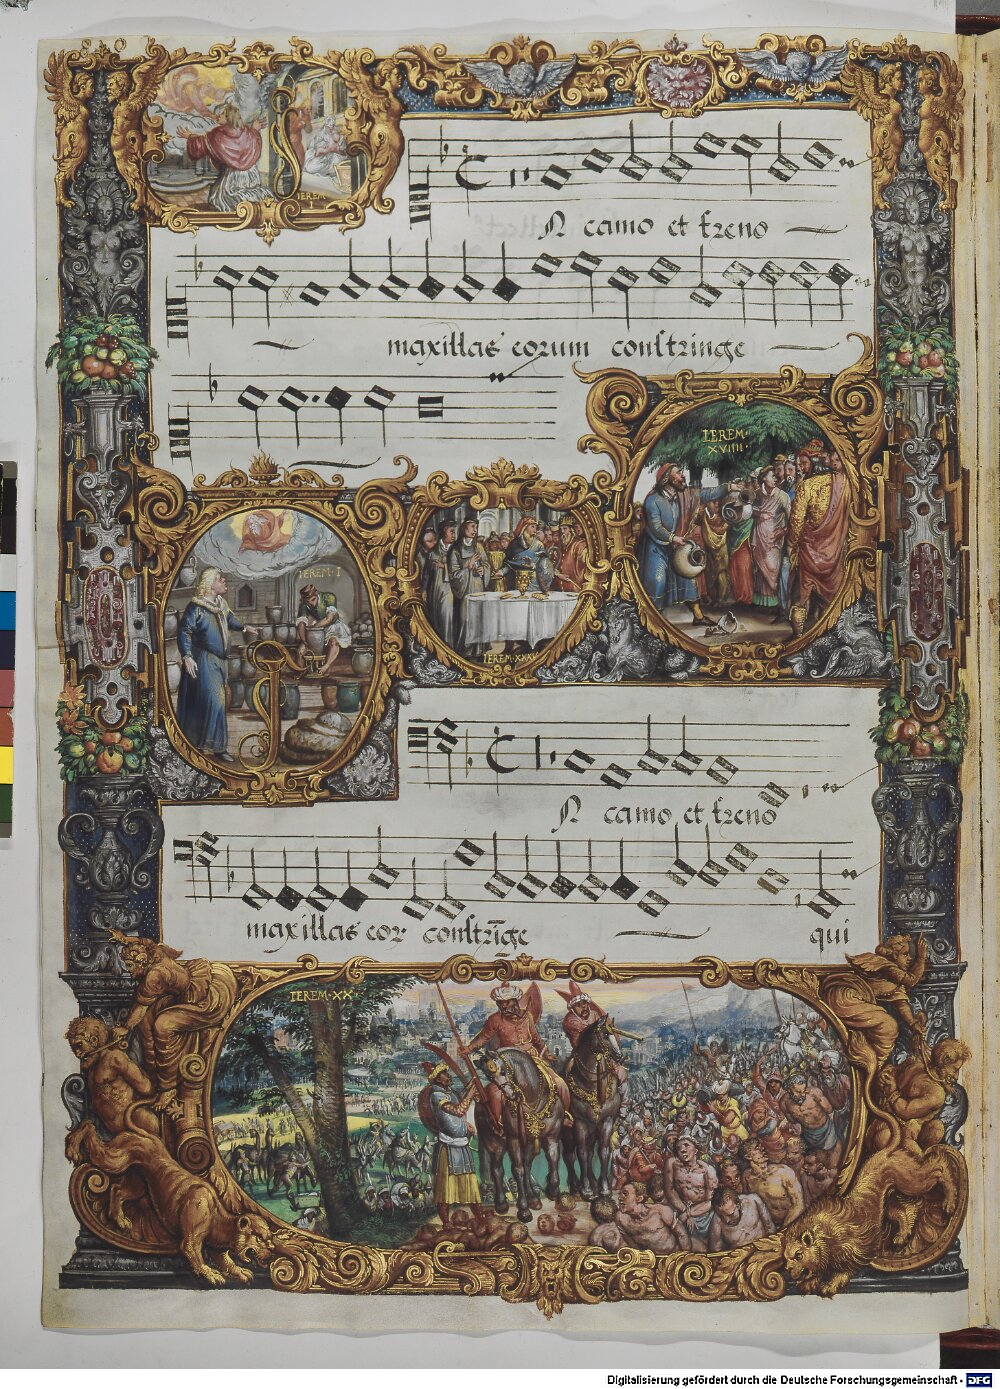 IEREM
IN camo et freno
maxillas eorum constringe
IEREM·
XVIIII·
IEREM·I
IEREM·XXXV
IN camo et freno
maxillas eor constrīge qui
IEREM·XX·
Digitalisierung gefördert durch die Deutsche Forschungsgemeinschaft - DFG